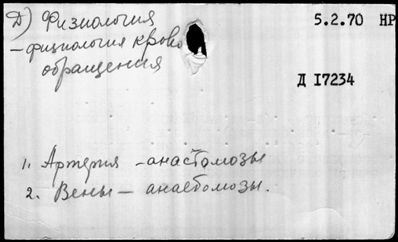 Д) Физиология
5.2.70 НР
– физиология крово
обращения
Д 17234
1. Артерия - анастомозы
2. Вены – анастомозы.